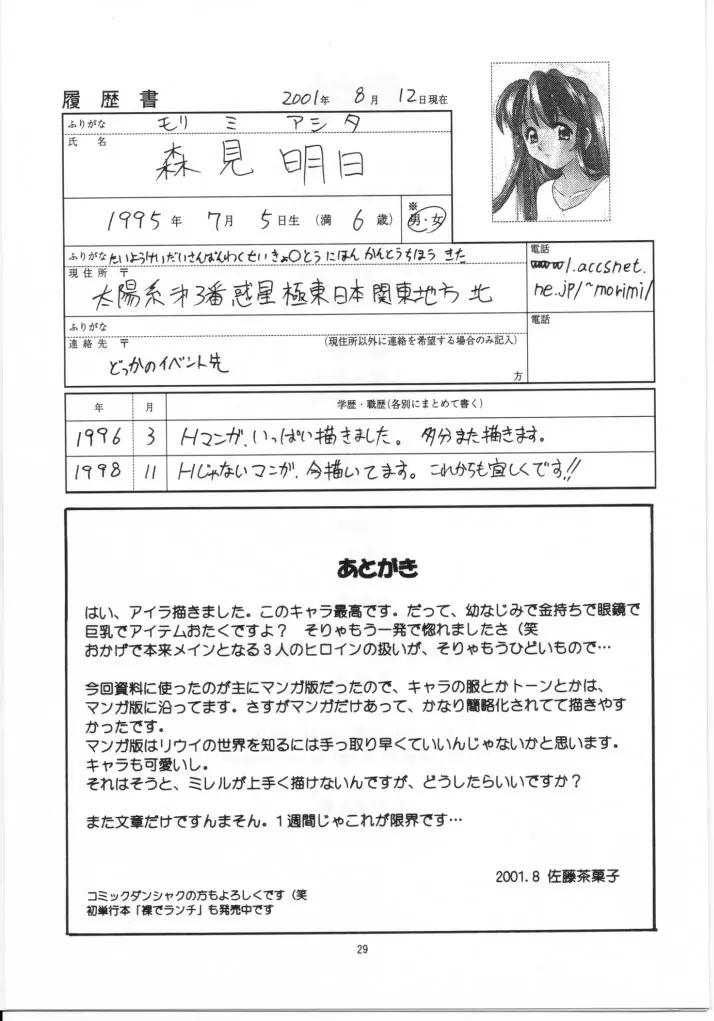 履歴書 2001年 8月 12日現在
ふりがな モリ ミ アシタ
氏名 森見 明日
1995年 7月 5日生 (満 6歳) ※ 男・女
ふりがな たいようけいだいさんばんわくせいきょくとうにほんかんとうちほう きた
現住所 〒
太陽系第3番惑星極東日本関東地方 北
電話
www1.accsnet.
ne.jp/~morimi/
ふりがな
連絡先 〒 (現住所以外に連絡を希望する場合のみ記入)
どっかのイベント先
方
電話
年 月 学歴・職歴(各別にまとめて書く)
1996 3 Hマンガ、いっぱい描きました。 多分また描きます。
1998 11 Hじゃないマンガ、今描いてます。これからも宜しくです!!
あとがき
はい、アイラ描きました。このキャラ最高です。だって、幼なじみで金持ちで眼鏡で
巨乳でアイテムおたくですよ? そりゃもう一発で惚れましたさ(笑
おかげで本来メインとなる3人のヒロインの扱いが、そりゃもうひどいもので…
今回資料に使ったのが主にマンガ版だったので、キャラの服とかトーンとかは、
マンガ版に沿ってます。さすがマンガだけあって、かなり簡略化されてて描きやす
かったです。
マンガ版はリウイの世界を知るには手っ取り早くていいんじゃないかと思います。
キャラも可愛いし。
それはそうと、ミレルが上手く描けないんですが、どうしたらいいですか?
また文章だけですんまそん。1週間じゃこれが限界です…
2001.8 佐藤茶菓子
コミックダンシャクの方もよろしくです(笑
初単行本「裸でランチ」も発売中です
29